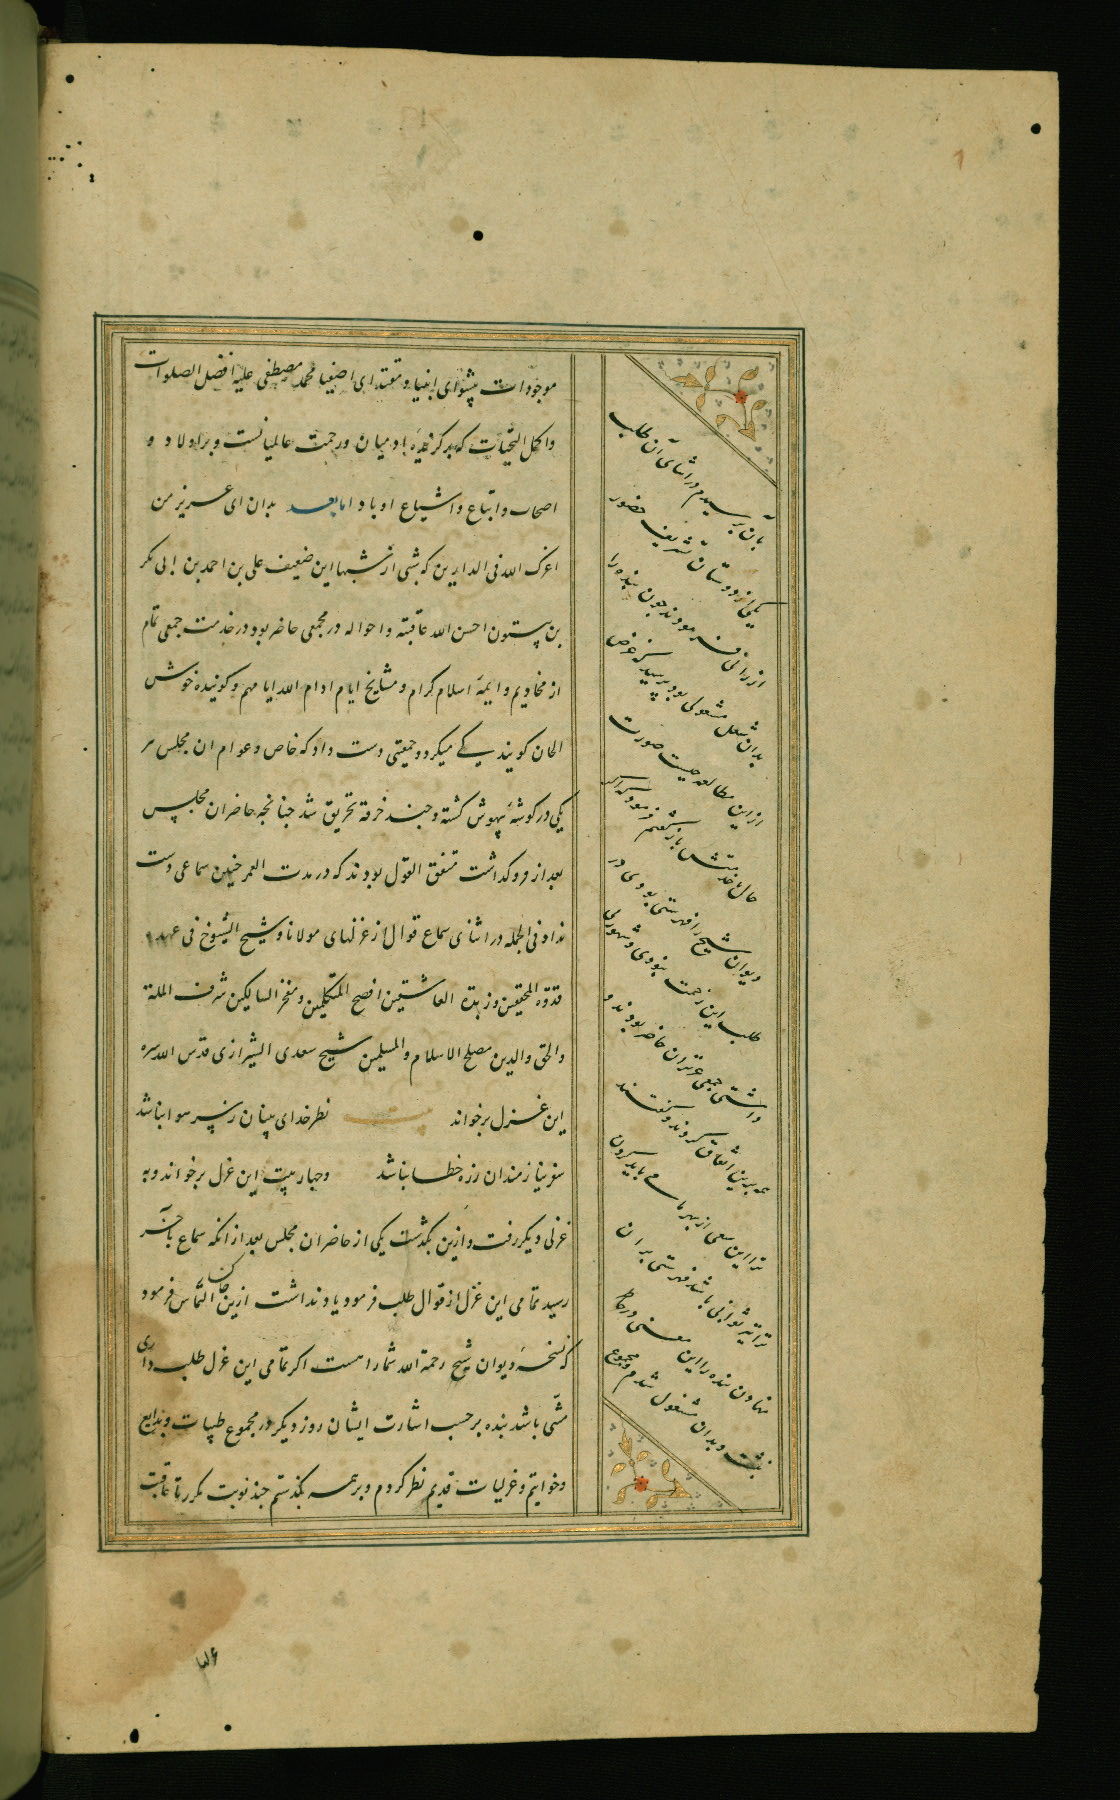 موجودات پیشوای انبیا و مقتدای اصفیا محمد مصطفی علیه افضل الصلوات
واکمل التحیات که برگزیدهٔ آدمیان و رحمت عالمیانست و بر اولاد و
اصحاب و اتباع و اشیاع او باد اما بعد بدان ای عزیز من
اعزک الله فی الدارین که شبی از شبها این ضعیف علی بن احمد بن ابی بکر
بن بیستون احسن الله عاقبته و احواله در مجمعی حاضر بود در خدمت جمعی تمام
از مخادیم و ایمهٔ اسلام کرام و مشایخ ایام ادام الله ایامهم و کوینده خوش
الحان کویندیکی میکرد و جمعیتی دست داد که خاص و عوام ان مجلس هر
یکی در کوشهٔ بیهوش کشته و چند خرقه تخریق شد چنانچه حاضران مجلس
بعد از فروکداشت متفق القول بودند که در مدت العمر چنین سماعی دست
نداد فی الجمله در اثنای سماع قوال از غزلهای مولانا و شیخ الشیوخ فی عهده
قدوه المحققین و زبدة العاشقین افصح المتکلمین و مفخر السالکین شرف الملة
والحق والدین مصلح الاسلام والمسلمین شیخ سعدی الشیرازی قدس الله سره
این غزل برخواند بیت نظر خدای بینان ز سر هوا نباشد
سفر نیازمندان ز ره خطا نباشد و چهار بیت این غزل برخواند و به
غزلی دیکر رفت و ازین بکذشت یکی از حاضران مجلس بعد از انکه سماع بآخر
رسید تمامی این غزل از قوال طلب فرمود یاد نداشت ازین خاکی التماس فرمود
که نسخهٔ دیوان شیخ رحمة الله شما را هست اکر تمامی این غزل طلب داری
منتی باشد بنده بر حسب اشارت ایشان روز دیکر در مجموع طیبات و بدایع
و خواتیم و غزلیات قدیم نظر کردم و بر همه بکذشتم چند نوبت مکرر تا عاقبت
بآن برسیدم در اثنای آن طلب
یکی از دوستان تشریف حضور
ارزانی فرمودند چون بنده را
بدان شغل مشغول بود پرسید که غرض
از این مطالعه چیست صورت
حال با خدمتش بازکفتم فرمود که اکر
دیوان شیخ را فهرستی بودی در
طلب این زحمت نبودی و سهولتی
داشتی جمعی عزیزان حاضر بودند و
همه برین اتفاق کردند و کفتند
ترا این سعی از بهر ما می باید کردن
ترا نیز ثوابی باشد فهرستی بر ان
نهادن بنده را این معنی در خاطر
نشست و بدان مشغول شدم و مجموع